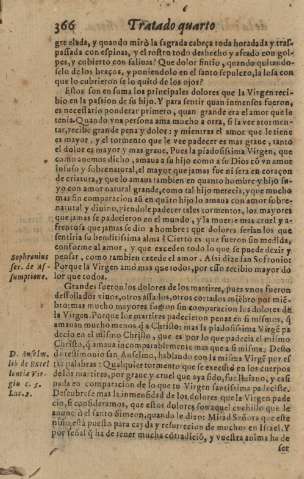 366 Tratado quarto
gre elada, y quando mirò la sagrada cabeça toda horadada y tras-
passada con espinas, y el rostro todo deshecho y afeado con gol-
pes, y cubierto con saliuas? Que dolor sintio, quando quitandose-
lo de los braços, y poniendolo en el santo sepulcro, la losa con
que lo cubrieron se lo quitò de los ojos?
Estos son en suma los principales dolores que la Virgen reci-
bio en la passion de su hijo. Y para sentir quan inmensos fueron,
es necessario ponderar primero, quan grande era el amor que le
tenia. Quando vna persona ama mucho a otra, si la ve atormen-
tar, recibe gran pena y dolor: y mientras el amor que le tiene
es mayor, y el tormento que le vee padecer es mas graue, tanto
el dolor es mayor y mas graue. Pues la piadosissima Virgen, que
como auemos dicho, amaua a su hijo como a Dios cõ vn amor
infuso y sobrenatural, el mayor que jamas fue ni sera en coraçon
de criatura, y que lo amaua tambien en quanto hombre y hijo su-
yo con amor natural grande, como tal hijo merecia, y que mucho
mas sin comparacion a su hijo lo amaua con amor sobre-
natural y diuino, viendole padecer tales tormentos, los mayores
que jamas se padecieron en el mundo, y la muerte mas cruel y a-
frentosa que jamas se dio a hombre: que dolores serian los que
sentiria su benditissima alma? Cierto es que fueron sin medida,
conforme al amor, y que exceden todo lo que se puede dezir y
pensar, como tambien excede el amor. Assi dize san Sofronio:
Sophronius ser. de Assumptione.
Porque la Virgen amò mas que todos, por esso recibio mayor do
lor que todos.
Grandes fueron los dolores de los martires, pues vnos fueron
dessollados viuos, otros assados, otros cortados miẽbro por miẽ-
bro: mas mucho mayores fueron sin comparacion los dolores de
la Virgen. Porque los martires padecieron penas en si mismos, q̃
amauan mucho menos q̃ a Christo: mas la piadosissima Virgẽ pa-
decio en el mismo Christo, que es por lo que padecia el mismo
Christo, q̃ amaua incomparablemente mas que a si misma; Desto
D. Anselm. lib. de Excellentia Virgin. c. 5.
da testimonio san Anselmo, hablando con la misma Virgẽ por es-
tas palabras: Qualquier tormento que se executò en los cuerpos
de los martires, por graue y cruel que aya sido, fue liuiano, y casi
nada en comparacion de lo que tu Virgen santissima padeciste.
Luc. 2.
Descubrese mas la inmensidad de los dolores que la Virgen pade
cio, si consideramos, que estos dolores son aquel cuchillo que le
anunciò el santo Simeon, quando le dixo: Mirad Señora que este
niño està puesto para cayda y resurreccion de muchos en Israel. Y
por señal q̃ ha de tener mucha cõtradiciõ, y vuestra anima ha de
ser